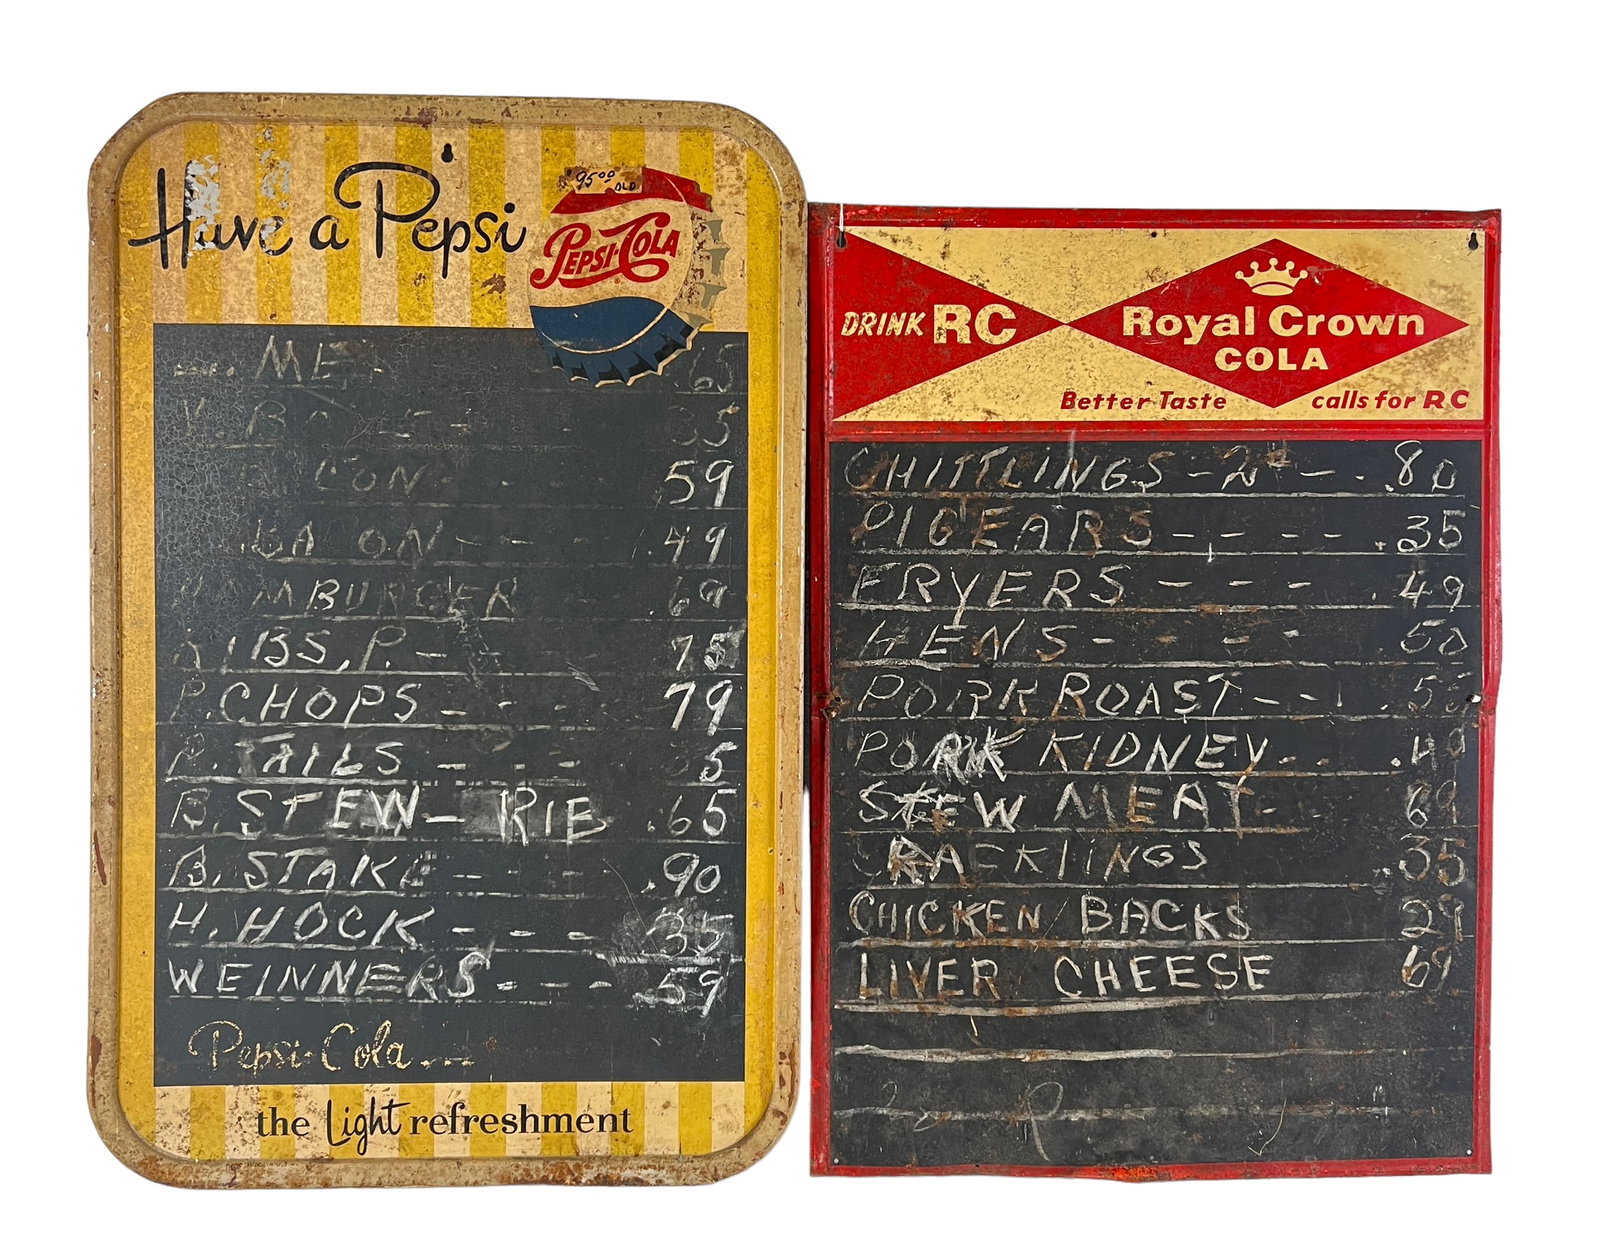 Have a Pepsi
$95.00 OLD
PEPSI-COLA
ME .65
B 35
CON - - - 59
BA ON - - - .49
AMBURGER - - .69
RIBS, P. - - - 75
P. CHOPS - - - 79
P. TAILS - - - 5
B. STEW - RIB .65
B. STAKE - - - .90
H. HOCK - - - .35
WEINNERS - - - .59
Pepsi-Cola
the Light refreshment
DRINK RC
Royal Crown
COLA
Better Taste calls for RC
CHITTLINGS - 2# - .80
PIG EARS - - - - .35
FRYERS - - - .49
HENS - - - - .50
PORK ROAST - - .55
PORK KIDNEY - - .49
STEW MEAT - - 69
CRACKLINGS .35
CHICKEN BACKS 29
LIVER CHEESE 69